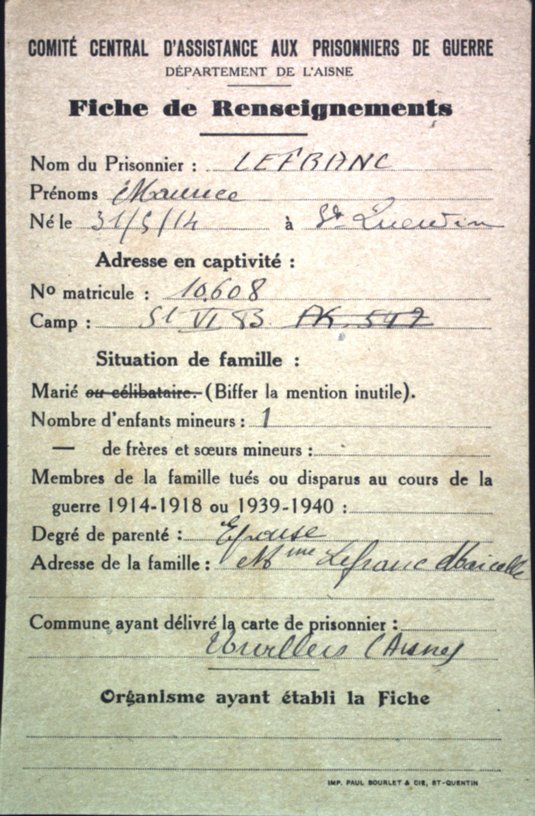 COMITÉ CENTRAL D'ASSISTANCE AUX PRISONNIERS DE GUERRE
DÉPARTEMENT DE L'AISNE
Fiche de Renseignements
Nom du Prisonnier : LEFRANC
Prénoms Maurice
Né le 31/5/14 à St Quentin
Adresse en captivité :
No matricule : 10.608
Camp : St VI B AK 547
Situation de famille :
Marié ou célibataire. (Biffer la mention inutile).
Nombre d'enfants mineurs : 1
— de frères et sœurs mineurs :
Membres de la famille tués ou disparus au cours de la
guerre 1914-1918 ou 1939-1940 :
Degré de parenté : Epouse
Adresse de la famille : Mme Lefranc Marcelle
Commune ayant délivré la carte de prisonnier :
Urvillers (Aisne)
Organisme ayant établi la Fiche
IMP. PAUL BOURLET & CIE, ST-QUENTIN